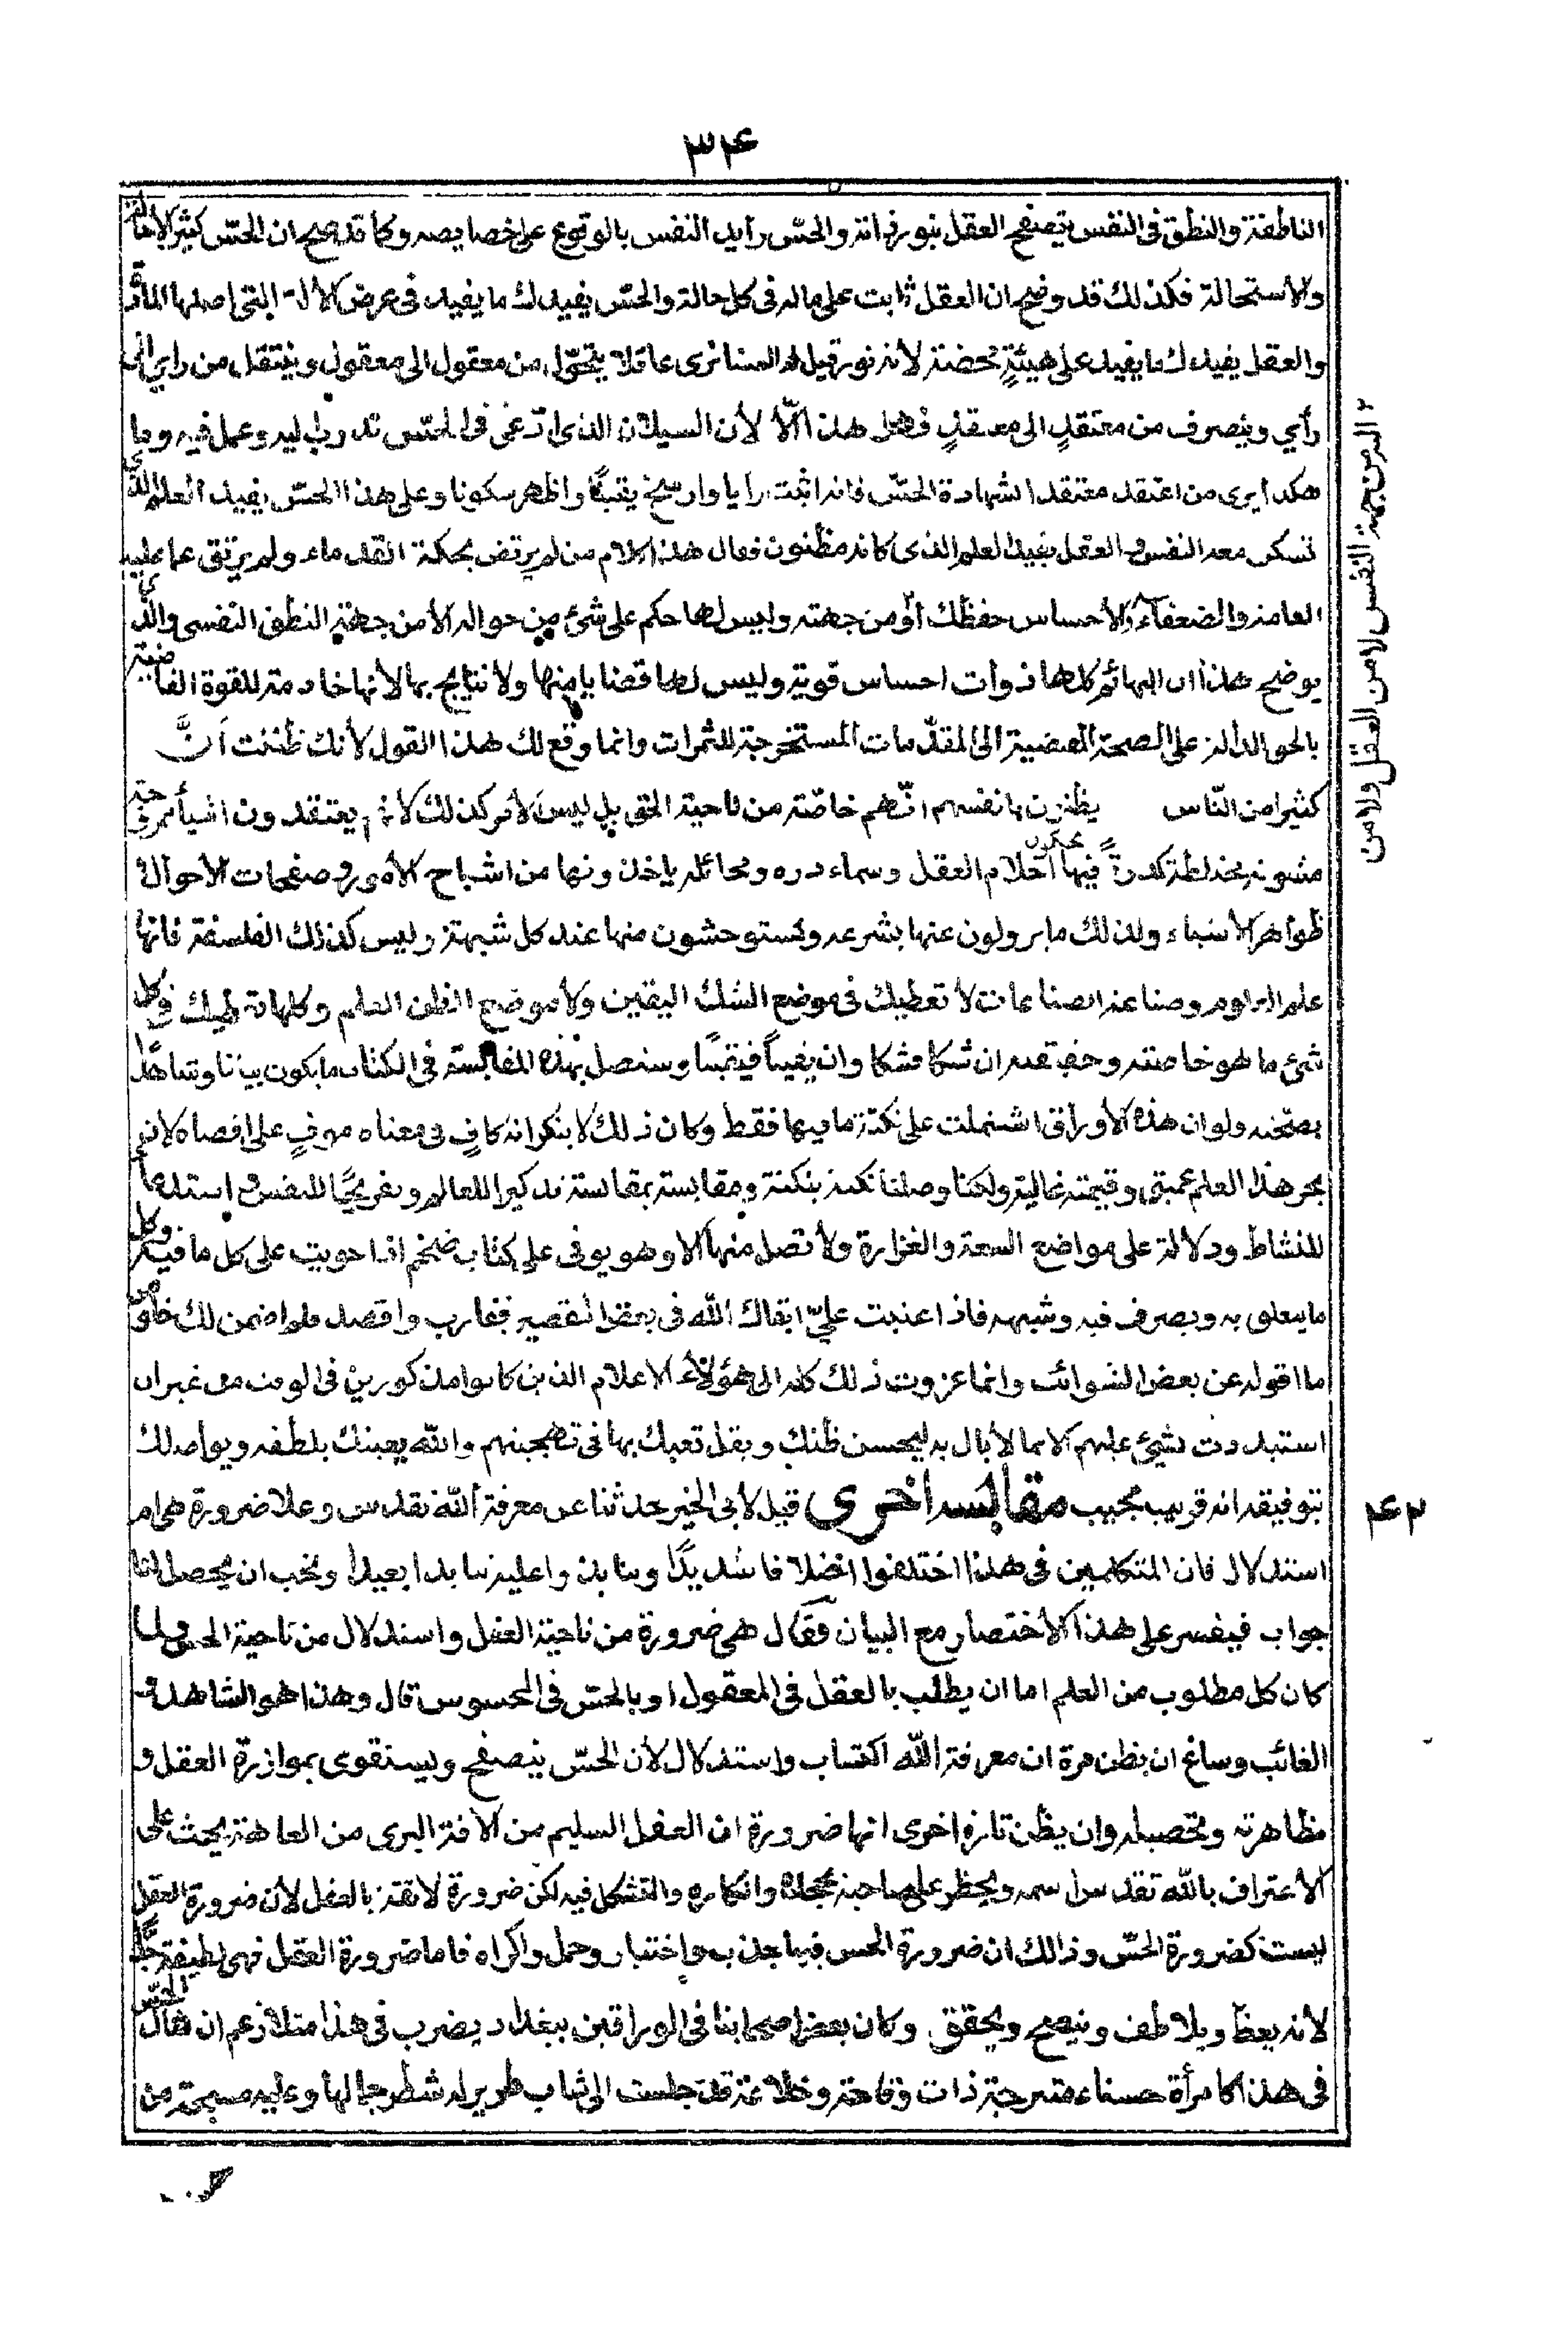 ۳۴
الناطقة والنطق فى النفس يتصفح العقل بنوره انه والحسّ رايد النفس بالوقوع على خصايصه وكما قد صح ان الحسّ كثير الاحالة
والاستحالة فكذلك قد وضح ان العقل ثابت على ماله فى كل حالة والحسّ يفيدك ما يفيد فى عرض الآلة التى اصلها المادّة
والعقل يفيدك ما يفيد على هيئةٍ محضة لأنه نور قيل له السنا نرى عاقلا يتحوّل من معقول الى معقول وينتقل من راى الى
رأي وينصرف من معتقدٍ الى معتقدٍ فهل هذا الّا لأن السيلان الذى ادّعى فى الحسّ قد رب اليه وعمل فيه وما
هكذا يرى من اعتقد معتقدا لشهادة الحسّ فانه اثبت رايا وارسخ يقينًا واظهر سكونا وعلى هذا الحسّ يفيد العلم الذى
تسكن معه النفس والعقل يفيد العلم الذى كانه مظنون فقال هذا كلام من لم يرتض بحكمة القدماء ولم يرتق عما عليه
العامة والضعفاء والأحساس حفظك الله من جهته وليس لها حكم على شئ من حواله الا من جهة النطق النفسى والذى
يوضح هذا ان البهائم كلها ذوات احساس قوية وليس لها قضايا منها ولا نتايج بها لأنها خادمة للقوة القاضية
بالحق الدالة على الصحة المفضية الى المقدّمات المستخرجة للثمرات وانما وقع لك هذا القول لأنك ظننت اَنَّ
كثيرا من النّاس يظنون بانفسهم انّهم خاصّة من ناحية الحق بل ليس الأمر كذلك لانهم يعتقدون اشياء
مشوبة مختلطة كدرةً يحكون فيها احلام العقل وسماءدره ومحائله ياخذونها من اشباح الأمور وصفحات الأحوال و
ظواهر الأشياء ولذلك ما يزولون عنها بشرعه ويستوحشون منها عند كل شبهة وليس كذلك الفلسفة فانها
علم العلوم وصناعة الصناعات لا تعطيك فى موضع الشك اليقين ولا موضع الظن العلم ولكنها تعطيك فى كل
شئ ما هو خاصته وحقيقته ان شكا فشكا وان يقيناً فيقينًا وسنصل بهذه المقابسة فى الكتاب ما يكون بيانا وشاهدا
بصحته ولو ان هذه الأوراق اشتملت على نكتة ما فيها فقط وكان ذلك لا ينكر انه كافٍ فى معناه موفٍ على اقصاه لانه
بحر هذا العلم عميق وقيمته غالية ولكنا وصلنا نكتة بنكتة ومقابسة بمقابسة تذكيرا للعالم وتفريحًا للنفس واستدعا
للنشاط ودلالة على مواضع السعة والغزارة ولا تصل منها الا وهو يوفى على كتاب ضخم اذا حويت على كل ما فيه وكل
ما يتعلق به ويصرف فيه وشبهه فاذا عتبت علىّ ابقاك الله فى بعض التقصير فقارب واقصد فلم اضمن لك خلوّ
ما اقوله عن بعض الشوائب وانما عزوت ذلك كله الى هؤلاء الاعلام الذين كانوا مذكورين فى الوقت من غير ان
استبددت بشئ عليهم الا بما لا بال به ليحسن ظنك ويقل تعبك بها فى تهجينهم والله يعينك بلطفه ويواصلك
بتوفيقه انه قريب مجيب مقابسة اخرى قيل لأبى الخير حدثنا عن معرفة الله تقدس وعلا ضرورة هى ام
استدلال فان المتكلمين فى هذا اختلفوا اختلافا شديدًا وتنابذوا عليه تنابذا بعيدا ونحب ان يحصل لنا
جواب فيفسر على هذا الأختصار مع البيان فقال هى ضرورة من ناحية العقل واستدلال من ناحية الحس ولما
كان كل مطلوب من العلم اما ان يطلب بالعقل فى المعقول او بالحسّ فى المحسوس قال وهذا هو الشاهد و
الغائب وساغ ان يظن مرة ان معرفة الله اكتساب واستدلال لأن الحسّ يتصفح ويستقوى بموازرة العقل و
مظاهرته وتحصيله وان يظن تارة اخرى انها ضرورة ان العقل السليم من الآفة البرى من العاهة يحث على
الأعتراف بالله تقدس اسمه ويحظر على صاحبه جحده وانكاره والتشكك فيه لكن ضرورة لائقة بالعقل لأن ضرورة العقل
ليست كضرورة الحسّ وذالك ان ضرورة الحس فيها جذب واختيار وحمل واكراه فاما ضرورة العقل فهى لطيفة جدًّا
لأنه يعظ ويلاطف وينصح ويحقق وكان بعض اصحابنا فى الوراقين ببغداد يضرب فى هذا مثلا زعم ان مثال الحسّ
فى هذا كامرأة حسناء متبرجة ذات وقاحة وخلاعة قد جلست الى شاب طرير له شطر جمالها وعليه مسحة من
۲ الد من جهة النفس لا من العقل ولا من
۴۲